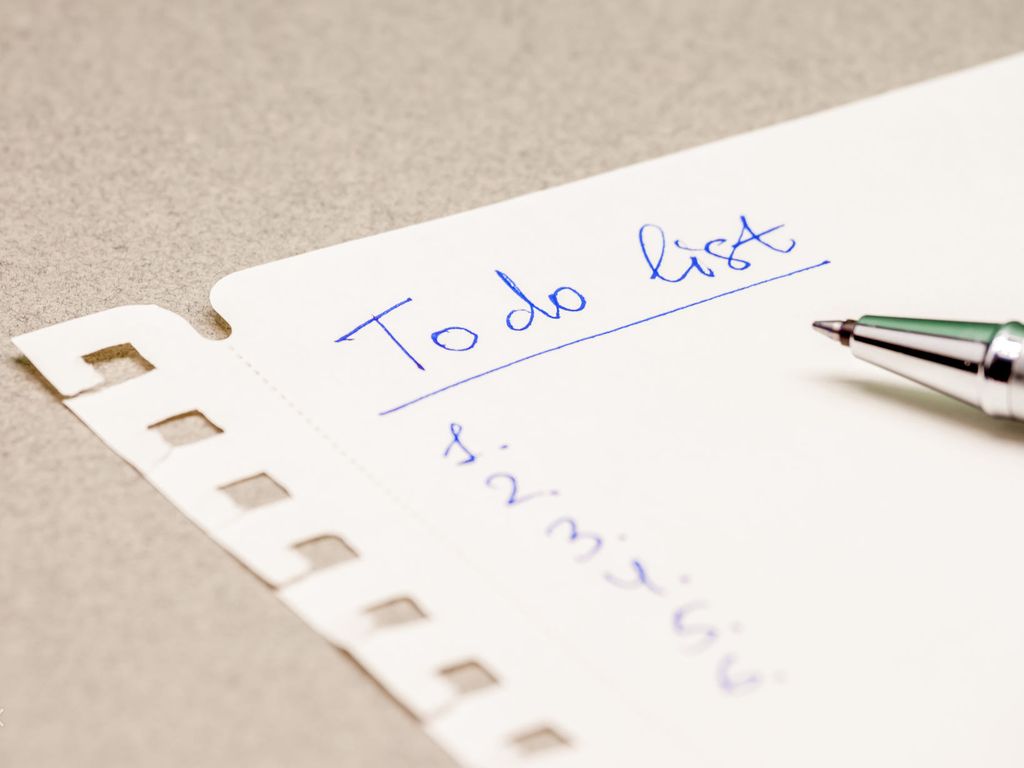 To do list
1.
2.
3.
4.
5.
6.